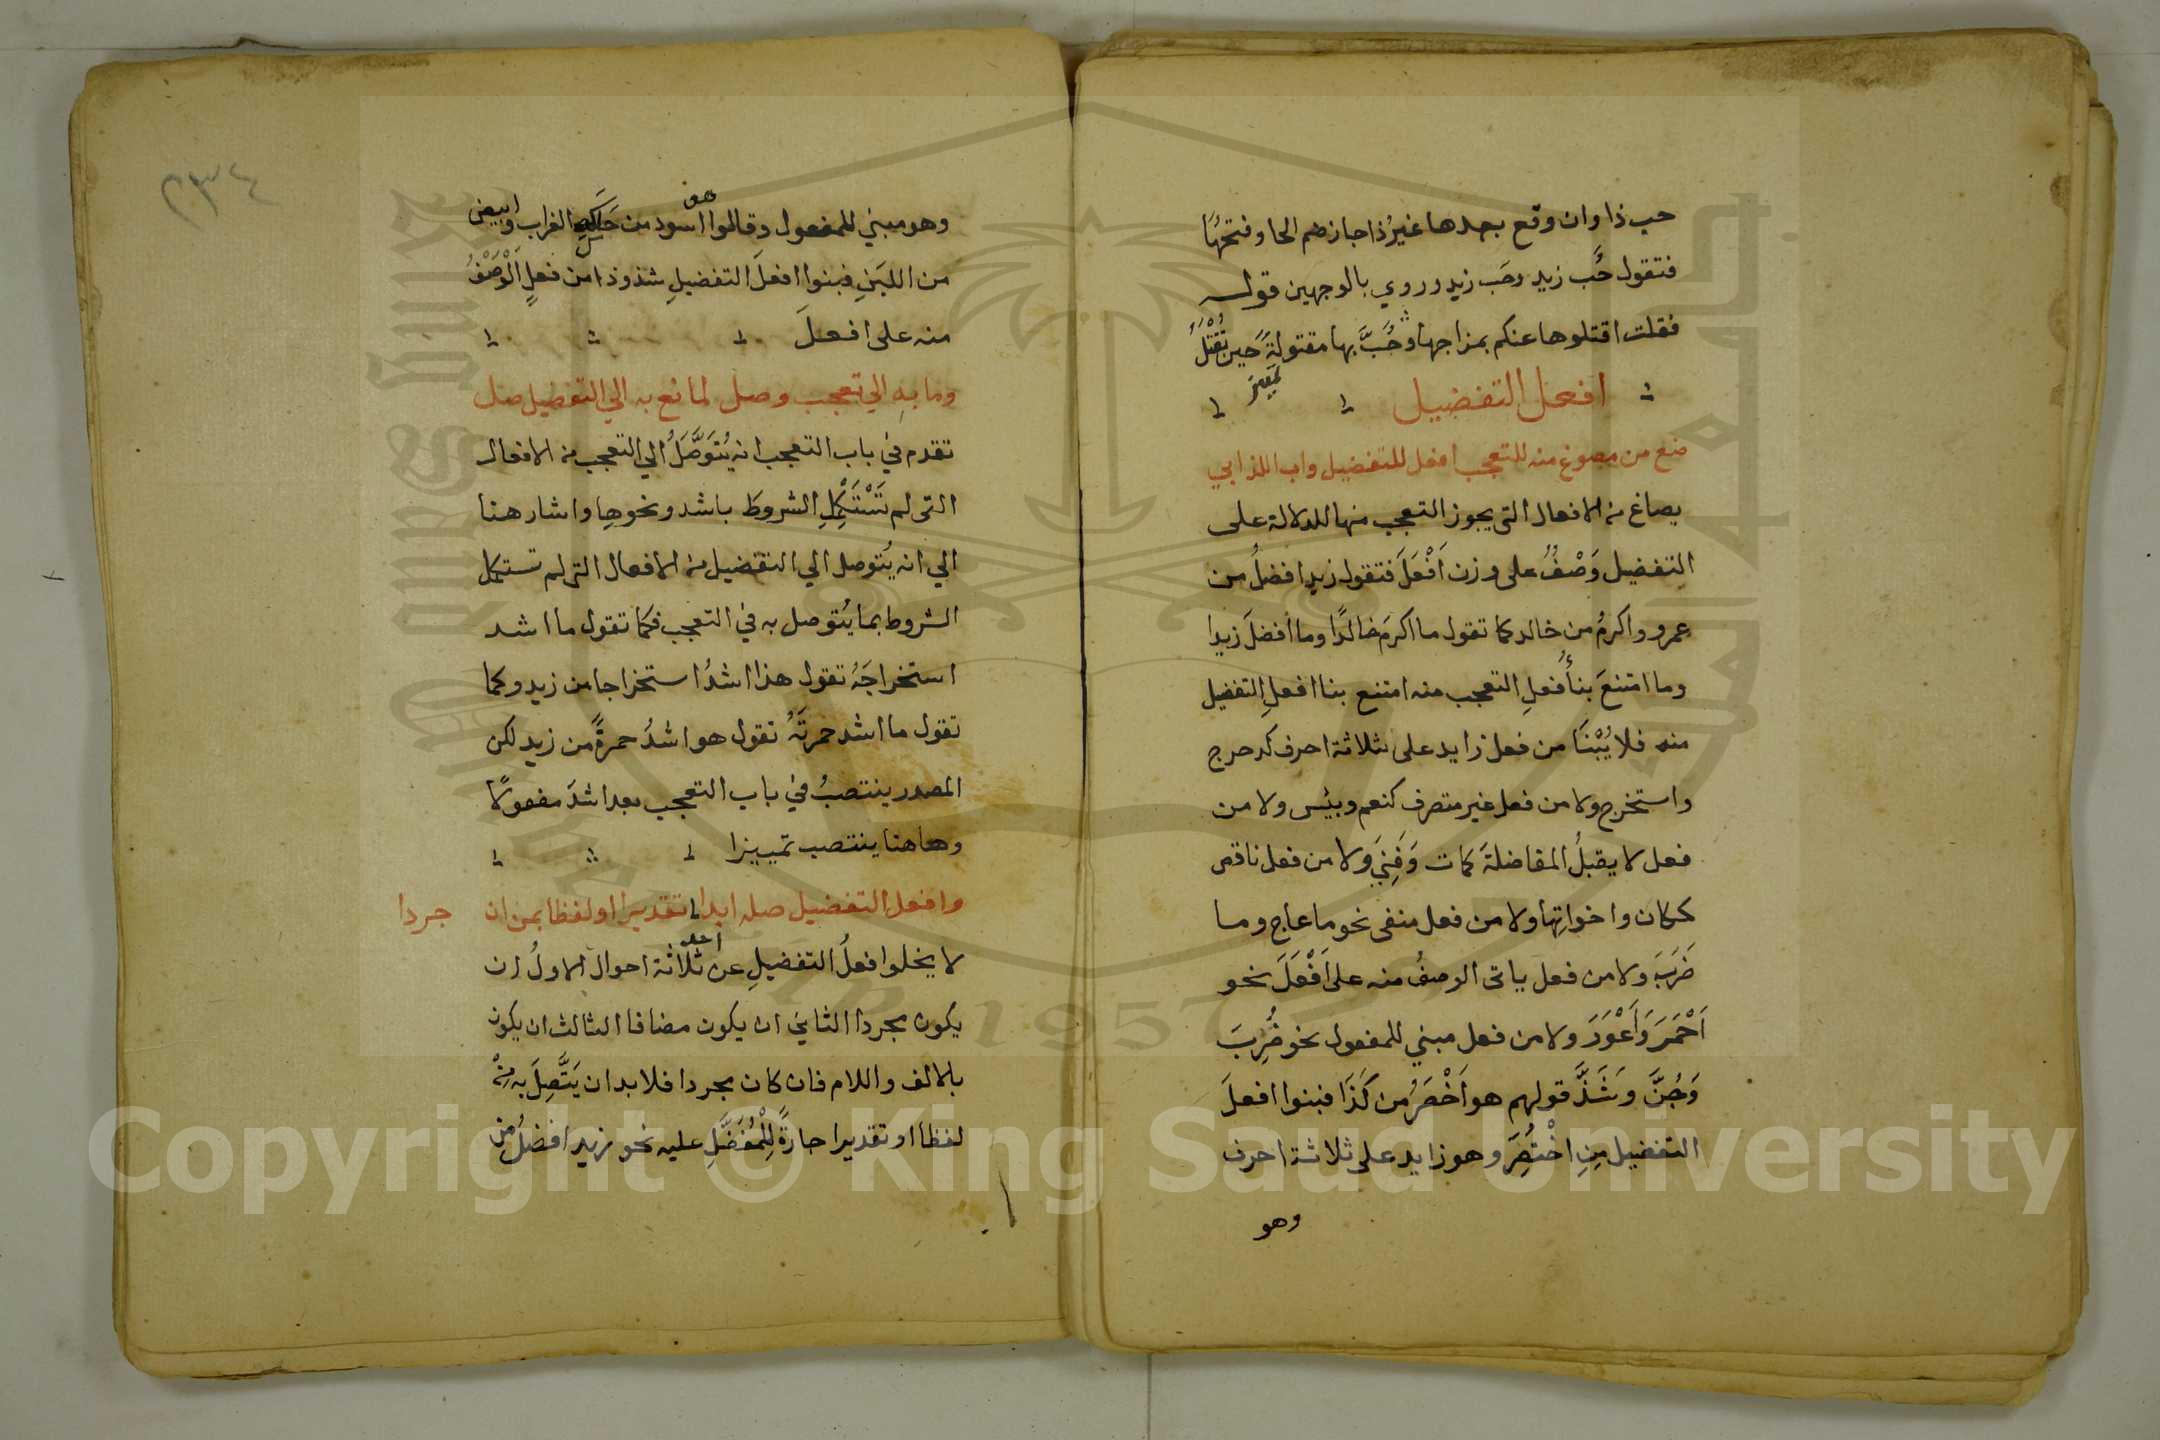 حب ذا وان وقع بعدها غيرُ ذا جاز ضم الحا وفتحُهَا
فتقول حُب زيد وحَب زيد وروي بالوجهين قوله
فقلت اقتلوها عنكم بمزاجها وحُبَّ بها مقتولةً حين تُقْتَلُ
افعل التفضيل
تمييز
صغ من مصوغ منه للتعجب افعل للتفضيل واب اللذ ابي
يصاغ من الافعال التى يجوز التعجب منها للدلالة على
التفضيل وَصْفٌ على وزن اَفْعَلَ فتقول زيد افضلُ من
عمرو واكرمُ من خالد كما تقول ما اكرمَ خالدًا وما أفضلَ زيدا
وما امتنعَ بناُ أفعلِ التعجب منه امتنع بنا افعلِ التفضيل
منه فلا يُبْنَا من فعل زايد على ثلاثة احرف كدحرج
واستخرج ولا من فعل غير متصرف كنعم وبئس ولا من
فعل لا يقبلُ المفاضلةَ كمات وَفَنِيَ ولا من فعل ناقص
ككان واخواتِها ولا من فعل منفى نحو ما عاج وما
ضَرَبَ ولا من فعل ياتى الوصفُ منه على اَفْعَلَ نحو
اَحْمَرَ وَاَعْوَرَ ولا من فعل مبني للمفعول نحو ضُرِبَ
وَجُنَّ وَشَذَّ قولهم هو اَخْصَرُ من كَذَا فبنوا افعلَ
التفضيل مِنِ اخْتُصِرَ وهو زايد على ثلاثة احرف
وهو
٢٣٤
وهو مبني للمفعول وقالوا هو اسود من حَلَكِ الغراب وابيض
من اللبَنِ فبنوا افعلَ التفضيلِ شذوذا من فعلٍ اَلْوَصْفُ
منه على افعلَ
وما بهِ الي تعجب وصل لمانع به الي التفضيل صل
تقدم في باب التعجب انه يُتَوَصَّلُ الي التعجب من الافعال
التى لم تَسْتَكْمِلِ الشروطَ باشد ونحوِها واشار هنا
الي انه يُتوصل الي التفضيل من الافعال التى لم تستكمل
الشروط بما يُتوصل به في التعجب فكما تقول ما اشد
استخراجَهُ تقول هذا اشدُ استخراجا من زيد وكما
تقول ما اشد حمرتَهُ تقول هو اشدُ حمرةً من زيد لكن
المصدر ينتصبُ في باب التعجب بعد اشدَ مفعولاً
وهاهنا ينتصب تمييزا
وافعل التفضيل صله ابدا تقديرا او لفظا بمن ان جردا
لا يخلوا افعلُ التفضيلِ عن احد ثلاثة احوال الاولُ ان
يكون مجردا الثاني ان يكون مضافا الثالث ان يكون
بالالف واللام فان كان مجردا فلا بد ان يَتَّصِلَ به مِنْ
لفظا او تقديرا جارةً لِلْمُفَضَّلِ عليه نحو زيد افضلُ من
Copyright © King Saud University
1957